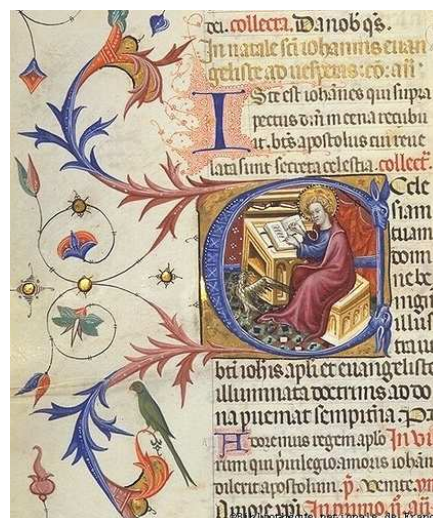 dei. collecta. Da nob̄ q̄s.
In natale sc̄i iohannis euan
geliste ad uesperas: co: añ
Iste est iohānes qui supra
pectus dn̄i in cena recubu
it. bt̄s apostolus cui reue
lata sunt secreta celestia. collect̄.
Eccle
siam
tuam
dom
ne be
nign
illus
tra ut
bt̄i ioh̄is apl̄i et euangeliste
illuminata doctrinis ad do
na pueniat sempit̄na
Adoremus regem aplo In
rum qui priuilegio amoris iohan
dilexit apostolum. p̄. Venite.